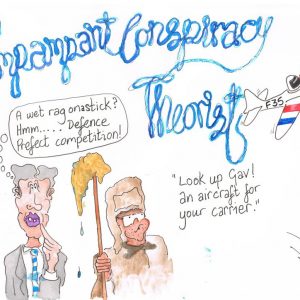 mpampant Conspiracy
Theorist
F35
A wet rag onastick?
Hmm..... Defence
Prefect competition!
"Look up Gav!
an aircraft for
your carrier."